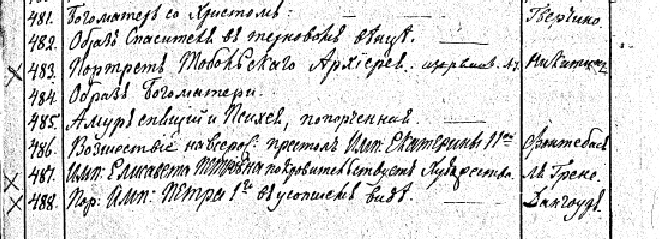 481. Богоматерь со Христомъ. Гверчино
482. Образъ Спасителя въ терновомъ вѣнцѣ.
483. Портретъ Тобольскаго Архіерея. Никитина
484. Образъ Богоматери.
485. Амуръ спящій и Психея, попорченная.
486. Возшествіе на всерос: престолъ Имп: Екатерины IIой Фонтебасъ
487. Имп: Елисавета Петровна покровительствуетъ Художества. ле Грене.
488. Пор: Имп: Петра 1го въ усопшемъ видѣ. Дангоуръ.